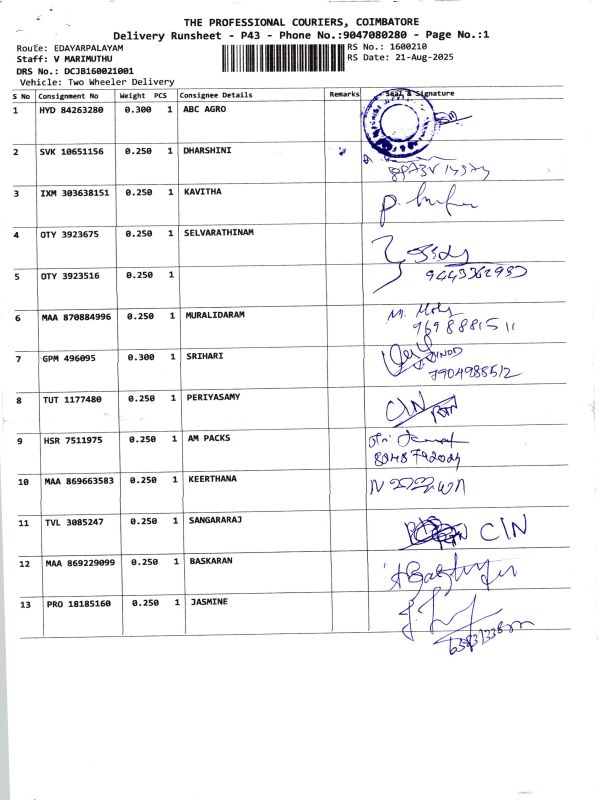 THE PROFESSIONAL COURIERS, COIMBATORE
Delivery Runsheet - P43 - Phone No.:9047080280 - Page No.:1
Route: EDAYARPALAYAM RS No.: 1600210
Staff: V MARIMUTHU RS Date: 21-Aug-2025
DRS No.: DCJB160021001
Vehicle: Two Wheeler Delivery
S No Consignment No Weight PCS Consignee Details Remarks Seal & Signature
1 HYD 84263280 0.300 1 ABC AGRO
2 SVK 10651156 0.250 1 DHARSHINI
3 IXM 303638151 0.250 1 KAVITHA
4 OTY 3923675 0.250 1 SELVARATHINAM
5 OTY 3923516 0.250 1
6 MAA 870884996 0.250 1 MURALIDARAM
9698881511
7 GPM 496095 0.300 1 SRIHARI
7904988512
8 TUT 1177480 0.250 1 PERIYASAMY CIN
9 HSR 7511975 0.250 1 AM PACKS
10 MAA 869663583 0.250 1 KEERTHANA
11 TVL 3085247 0.250 1 SANGARARAJ CIN
12 MAA 869229099 0.250 1 BASKARAN
13 PRO 18185160 0.250 1 JASMINE